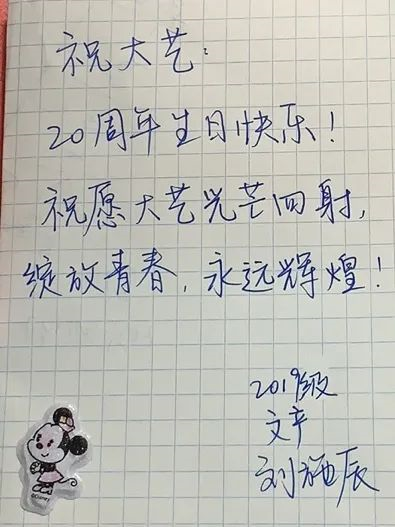 祝大艺：
20周年生日快乐！
祝愿大艺光芒四射，
绽放青春，永远辉煌！
2019级
文产
刘

辰